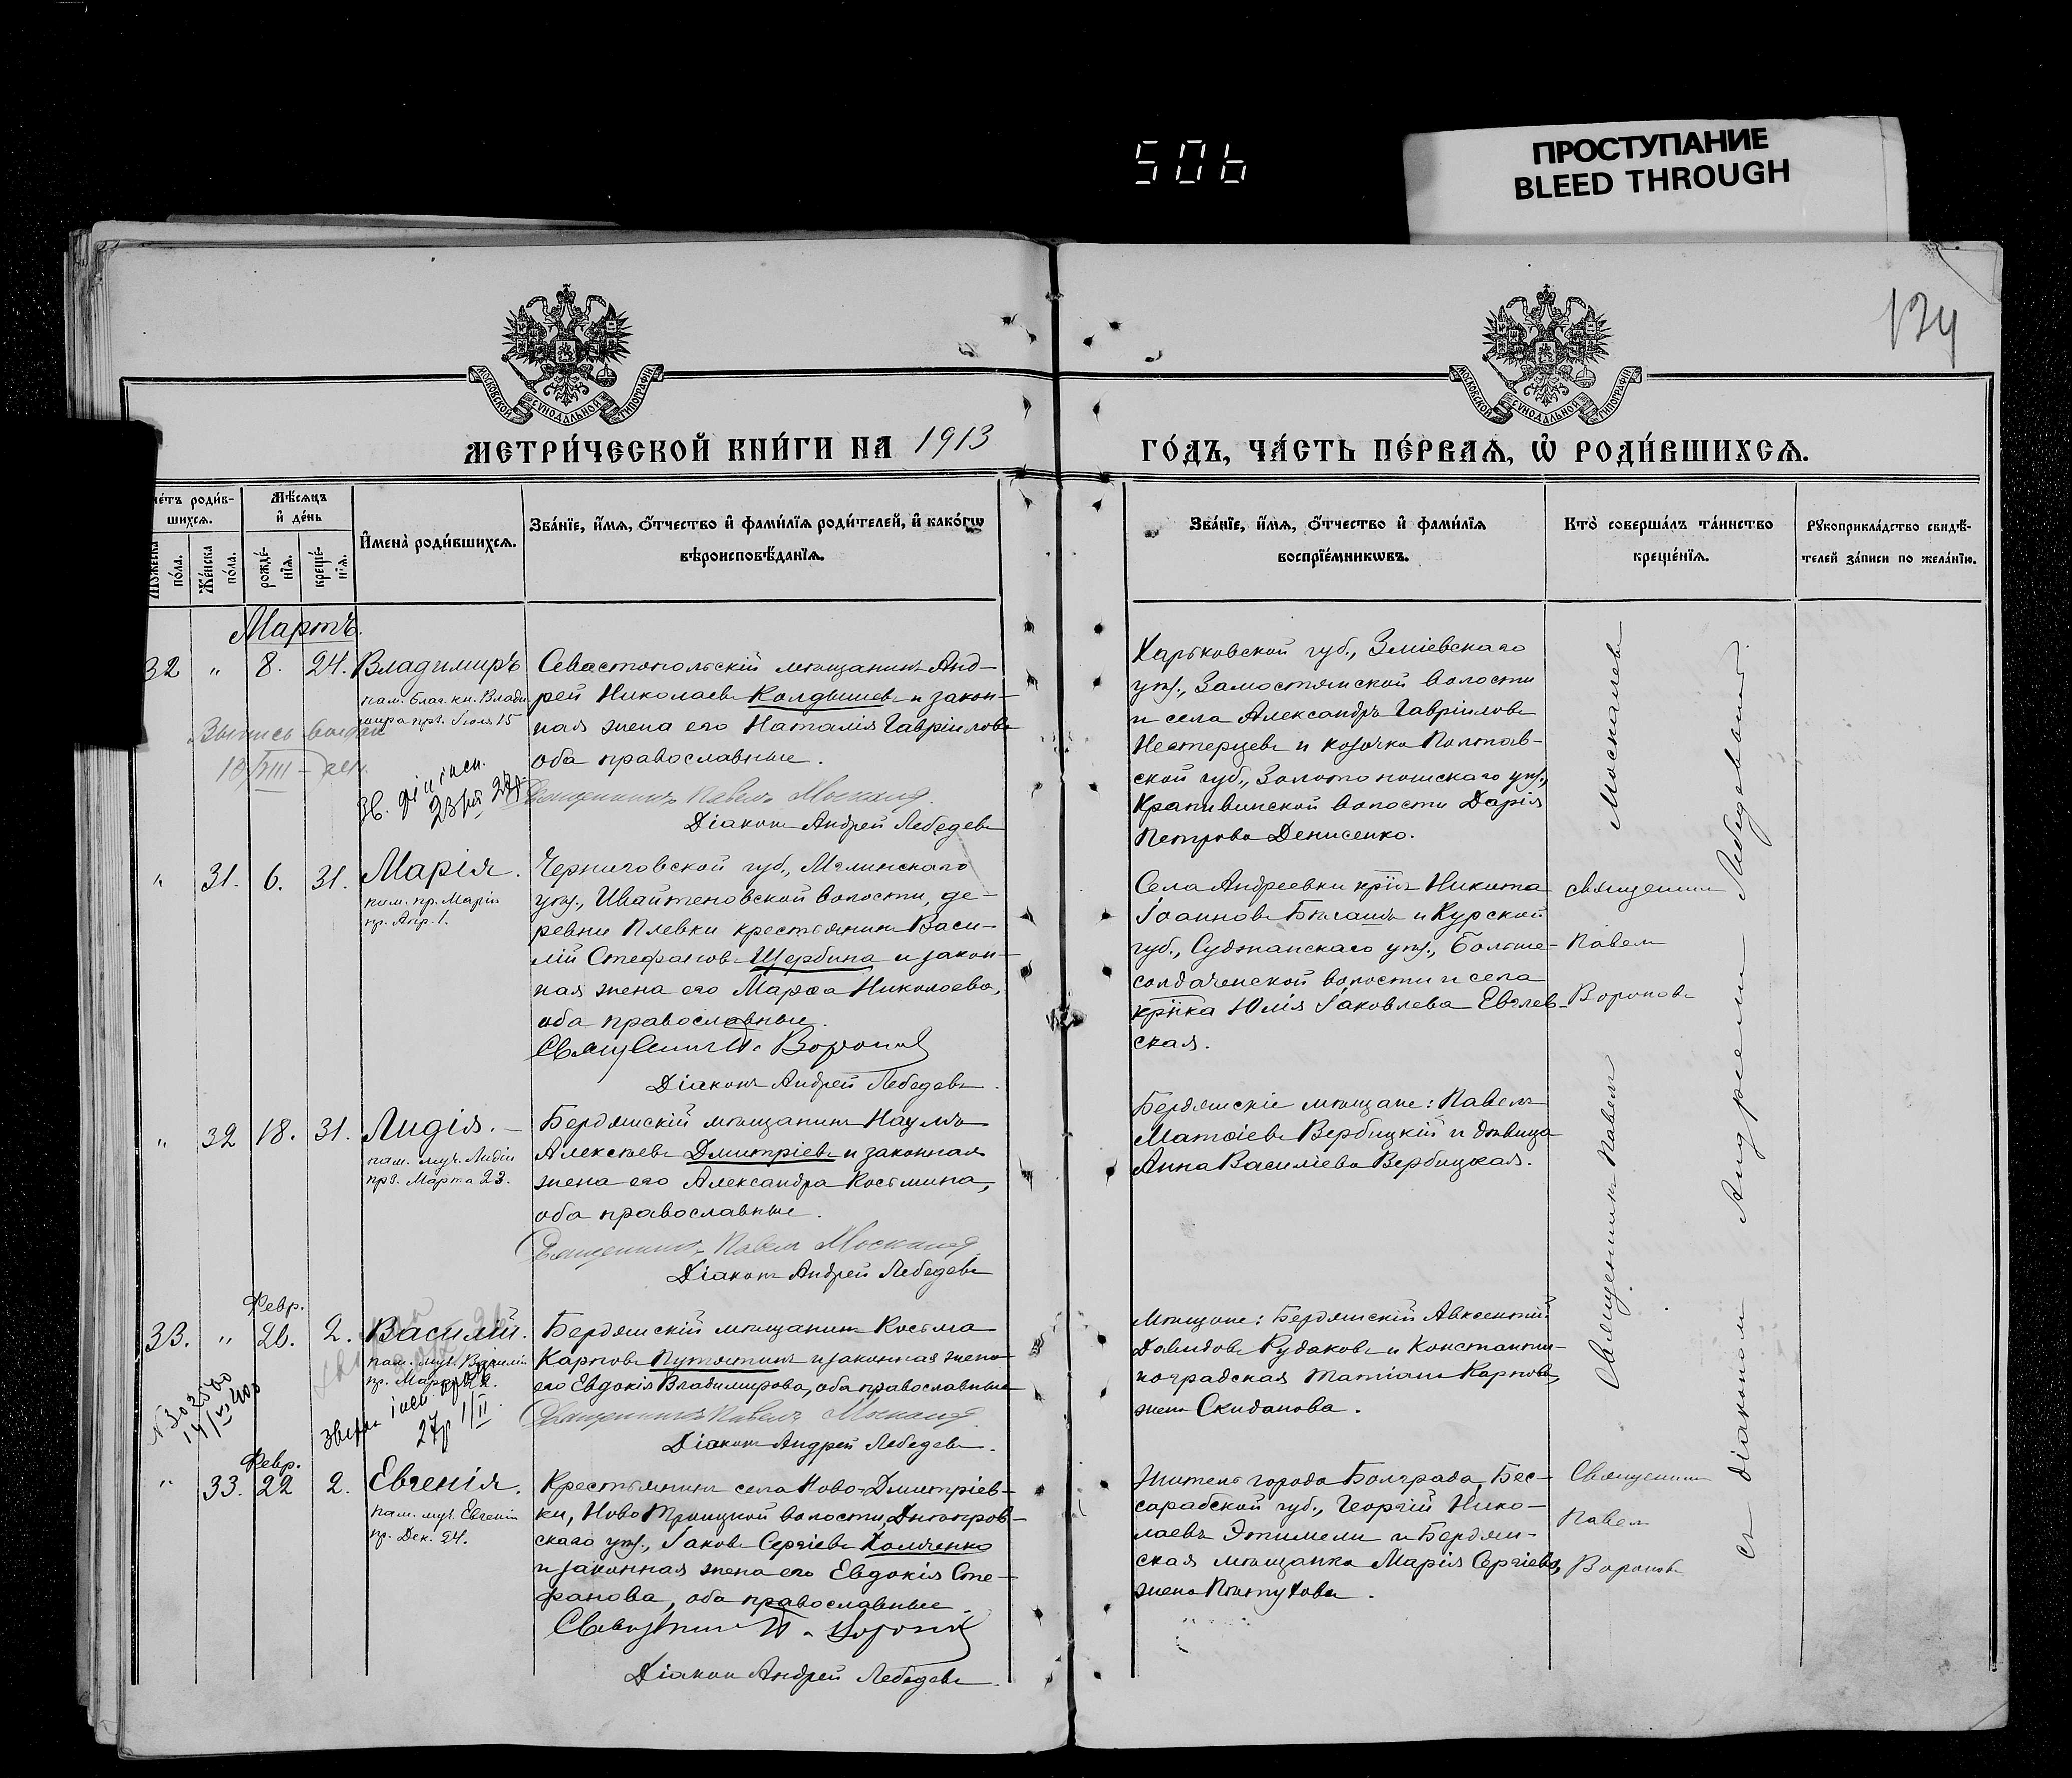 506
ПРОСТУПАНИЕ
BLEED THROUGH
134
МОСКОВСКОЙ СѴНОДАЛЬНОЙ ТИПОГРАФІИ
МОСКОВСКОЙ СѴНОДАЛЬНОЙ ТИПОГРАФІИ
МЕТРИ́ЧЕСКОЙ КНИ́ГИ НА 1913
ГО́ДЪ, ЧА́СТЬ ПЕ́РВАѦ, Ѡ҆ РОДИ́ВШИХСѦ.
че́тъ роди́в-
шихсѧ.
Мѣ́сѧцъ
и҆ де́нь
Мꙋ́жеска
по́ла.
Же́нска
по́ла.
рожде́-
нїѧ.
креще́-
нїѧ.
И҆мена̀ роди́вшихсѧ.
Зва́нїе, и҆́мѧ, ѻ҆́тчество и҆ фами́лїѧ роди́телей, и҆ како́гѡ
вѣроисповѣ́данїѧ.
Зва́нїе, и҆́мѧ, ѻ҆́тчество и҆ фами́лїѧ
воспрїе́мникѡвъ.
Кто̀ соверша́лъ та́инство
креще́нїѧ.
Рꙋкоприкла́дство свидѣ́-
телей за́писи по жела́нїю.
Мартъ.
32 " 8. 24. Владимиръ
пам. благ. кн. Влади
мира прз. Іюля 15
Севастопольскій мѣщанинъ Анд-
рей Николаевъ Колдышевъ и закон-
ная жена его Наталія Гавріилова
оба православные.
Священникъ Павелъ
Діаконъ Андрей Лебедевъ
Харьковской губ., Зміевскаго
уѣз., Замостянской волости
и села Александръ Гавріиловъ
Нестерцевъ и козачка Полтав-
ской губ., Золотоношскаго уѣз.,
Крапивинской волости Дарія
Петрова Денисенко.
" 31. 6. 31. Марія.
пам. пр. Маріи
пр. Апр. 1.
Черниговской губ., Мглинскаго
уѣз., Ивайтеновской волости, де-
ревни Плевки крестьянинъ Васи-
лій Стефановъ Щербина и закон-
ная жена его Марѳа Николаева,
оба православные.
Священникъ П. Вороновъ
Діаконъ Андрей Лебедевъ.
Села Андреевки кр̅і̅нъ Никита
Іоанновъ и Курской
губ., Суджанскаго уѣз., Больше-
солдатченской волости и села
Юлія Іаковлева
ская.
Священникъ
Павелъ
Вороновъ
" 32 18. 31. Лидія.
пам. муч. Лидіи
прз. Марта 23.
Бердянскій мѣщанинъ Наумъ
Алексѣевъ Дмитріевъ и законная
жена его Александра Косьмина,
оба православные.
Священникъ Павелъ
Діаконъ Андрей Лебедевъ
Бердянскіе мѣщане: Павелъ
Матѳіевъ Вербицкій и дѣвица
Анна Василіева Вербицкая.
Февр.
33. " 26. 2. Василій.
пам. муч. Василія
пр. Марта 22.
Бердянскій мѣщанинъ Косьма
Карповъ Путятинъ и законная жена
его Евдокія Владимирова, оба православные
Священникъ Павелъ
Діаконъ Андрей Лебедевъ.
Мѣщане: Бердянскій Авксентій
Давидовъ Рудаковъ и Константи-
ноградская Татіана Карпова,
жена Скиданова.
Священникъ Павелъ
съ діакономъ Андреемъ Лебедевымъ.
Февр.
" 33. 22 2. Евгенія.
пам. муч. Евгеніи
пр. Дек. 24.
Крестьянинъ села Ново-Дмитріев-
ки, Ново Троицкой волости, Днѣпров-
скаго уѣз., Іаковъ Сергіевъ
и законная жена его Евдокія Сте-
фанова, оба православные.
Священникъ П. Вороновъ
Діаконъ Андрей Лебедевъ.
Житель города Болграда, Бес-
сарабской губ., Георгій Нико-
лаевъ и Бердян-
ская мѣщанка Марія Сергіева,
жена
Священникъ
Павелъ
Вороновъ